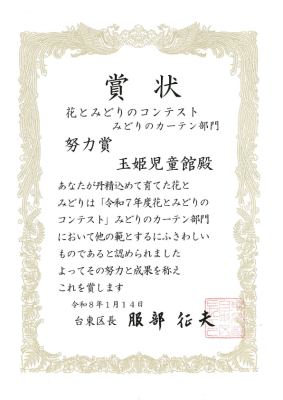 賞状
花とみどりのコンテスト
みどりのカーテン部門
努力賞
玉姫児童館殿
あなたが丹精込めて育てた花と
みどりは「令和７年度花とみどりの
コンテスト」みどりのカーテン部門
において他の範とするにふさわしい
ものであると認められました
よってその努力と成果を称え
これを賞します
令和８年１月１４日
台東区長 服部征夫